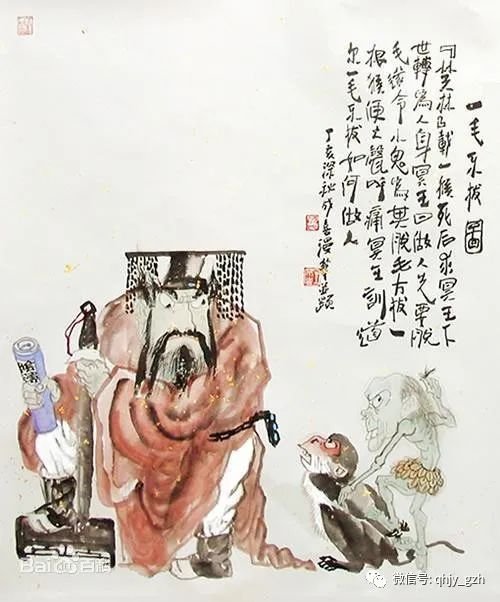 一毛不拔圖
『笑林』載一猴死后求冥王下
世轉為人身冥王曰做人先要脱
毛遂令小鬼為其脱毛方拔一
根猴便大聲呼痛冥王訓道
尔一毛不拔如何做人
丁亥深秋
Bai百科
微信号: qhjy_gzh